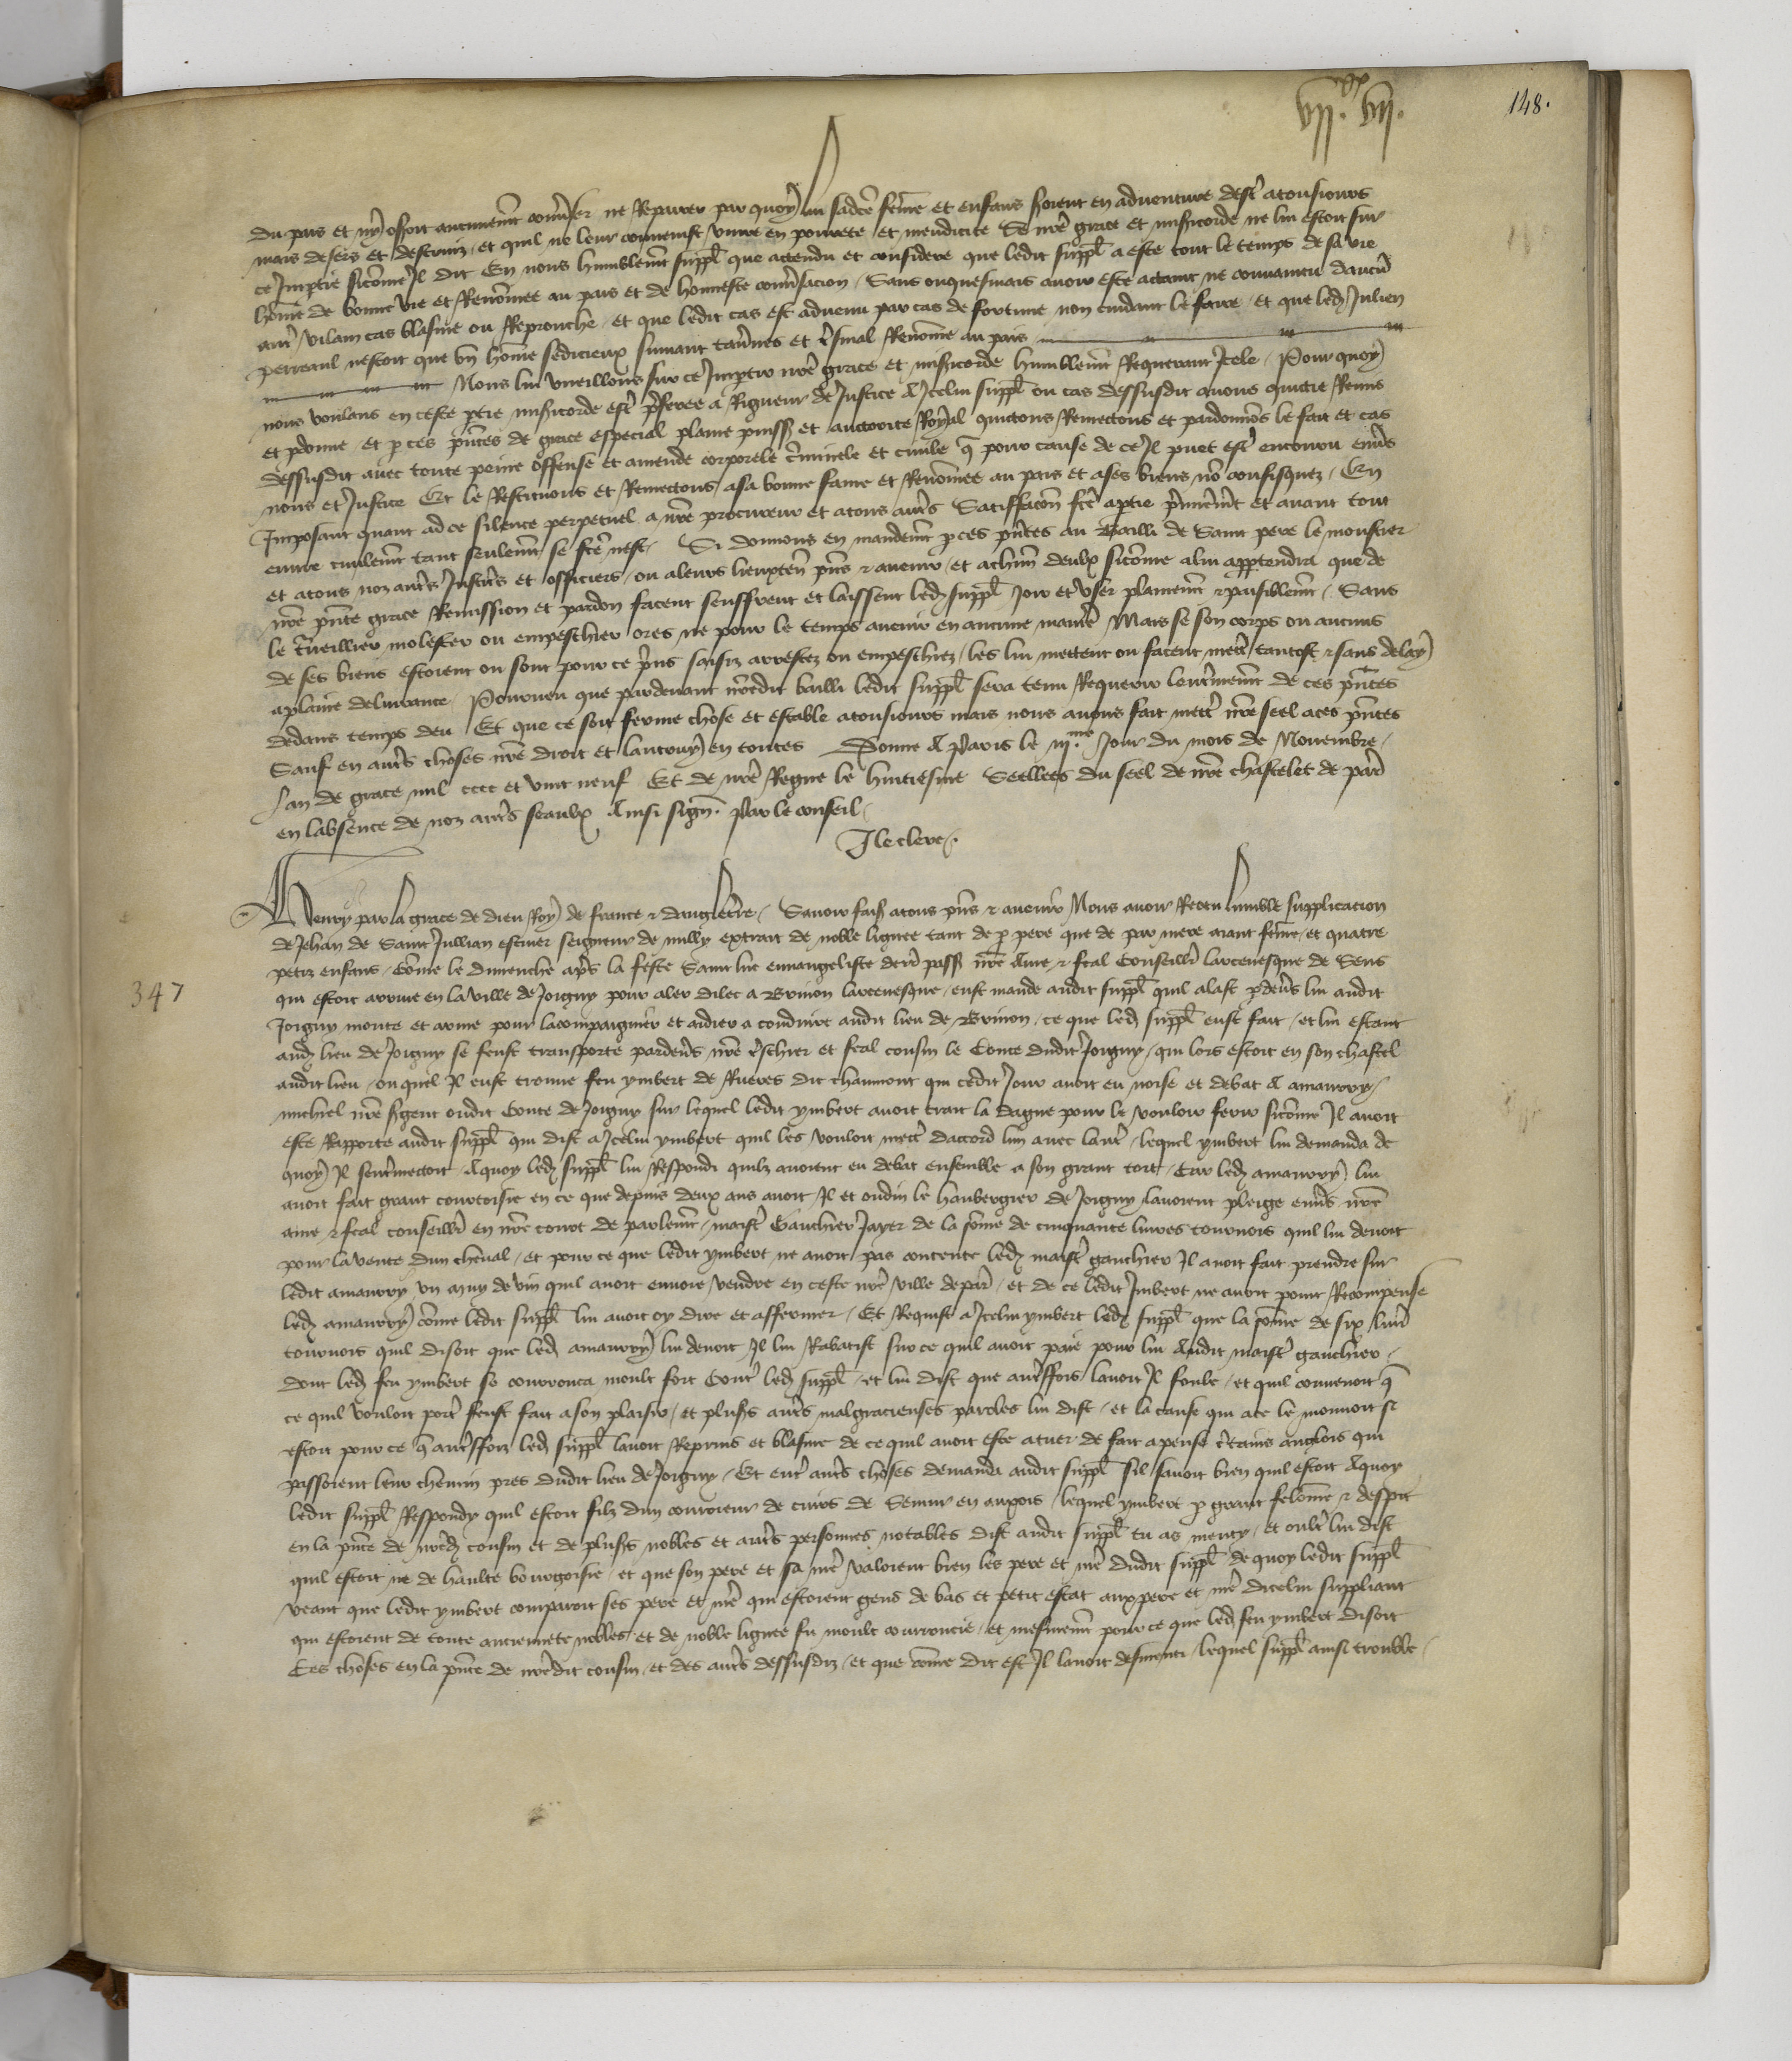 148.
VII.xx VII.
du pais et ny osoit aucunemt conuser ne Reparer par quoy lui sadce feme et enfans seront en aduenture dest atousiours
mais desers et destruiz / et quil ne leur conuenist viure en pourete et mendicite Se nre grace et misicorde ne lui estoit sur
ce Impartie sicome Il dit En nous humblemt suppl que attendu et considere que ledit suppl a este tout le temps de sa vie
home de bonne vie et Renomee au pais et de honneste conusacion / Sans onquesmais auoir este attaint ne conuaincu daucu
aut vilain cas blasme ou Reprouche / et que ledit cas est aduenu par cas de fortune non cuidant le faire / et que ledz Julien
perreaul nestoit que vn home sedicieux suiuant tauernes et tresmal Renome au pais
Nous lui vueillons sur ce Impartir nre grace et misicorde humblemt Requerant Icele / Pour quoy
nous voulans en ceste ptie misicorde est pferee a Rigueur de Justice A Icelui suppl ou cas dessusdit auons quitte Remis
et pdonne et p ces pntes de grace especial plaine puiss et auctorite Royal quictons Remectons et pardonnos le fait et cas
dessusdit auec toute peine offense et amende corporele criminele et ciuile q pour cause de ce Il puet est encouru enuers
nous et Justice Et le Restituons et Remectons asa bonne fame et Renomee au pais et ases biens no confisquez / En
Imposant quant adce silence perpetuel a nre procureur et atous auts Satisfacon fcte aptie pmieremt et auant tout
euure ciuilemt tant seulemt se fcte nest / Si donnons en mandemt p ces pntes au Bailli de Saint pere le moustier
et atous noz auts Justiciers et officiers / ou aleurs lieuxten pns & auenir / et achun deulx sicome alui apptendra que de
nre pnte grace Remission et pardon facent seuffrent et laissent ledz suppl Joir et vser plainemt & paisiblemt / Sans
le trueillier molester ou empeschier ores ne pour le temps auenir en aucune manie Mais se son corps ou aucuns
de ses biens estoient ou sont pour ce prins saisiz arrestez ou empeschiez / les lui mettent ou facent mettre tantost & sans delay
aplaine deliurance / Pourueu que pardeuant nredit bailli ledit suppl sera tenu Requerir lenterinemt de ces pntes
dedans temps deu Et que ce soit ferme chose et estable atousiours mais nous auons fait mett nre seel aces pntes
Sauf en auts choses nre droit et lautruy en toutes Donne A Paris le IIIme Jour du mois de Nouembre /
lan de grace mil cccc et vint neuf Et de nre Regne le huitiesme Seellees du seel de nre chastelet de par
en labsence de noz auts seaulx Ainsi sign. Par le conseil /
J le clerc /.
Henry par la grace de dieu Roy de france & dangleterre / Sauoir fais atous pns & auenir Nous auoir Receu lumble supplicacion
de Jehan de Saint Jullian escuier seigneur de milly extrait de noble lignee tant de p pere que de par mere aiant feme / et quatre
petiz enfans / Come le dimenche aps la feste Saint luc euuangeliste derr pass nre Ame & feal Conseiller larceuesque de Sens
347
qui estoit arriue en la ville de Joigny pour aler dilec a Brinon larceuesque / eust mande audit suppl quil alast pdeuers lui audit
Joigny monte et arme pour lacompaignier et aidier a conduire audit lieu de Brinon / ce que ledz suppl eust fait / et lui estant
audz lieu de Joigny se feust transporte pardeuers nre treschier et feal cousin le Conte dudit Joigny / qui lors estoit en son chastel
audit lieu / ou quel Il eust trouue feu ymbert de Rueres dit chaumont qui cedit Jour auoit eu noise et debat A amaurry /
michiel nre sergent oudit Conte de Joigny sur lequel ledit ymbert auoit trait la dague pour le vouloir ferir sicome Il auoit
este Rapporte audit suppl qui dist a Icelui ymbert quil les vouloit mett daccord lun auec laut / lequel ymbert lui demanda de
quoy Il sentremectoit / Aquoy ledz suppl lui Respondi quilz auoient eu debat ensemble a son grant tort / Car ledz amaurry lui
auoit fait grant courtoisie en ce que depuis deux ans auoit / Il et oudin le haubergier de Joigny lauoient pleige enuers nre
ame & feal conseiller en nre court de parlemt / maist Gauchier Jayer de la some de cinquante liures tournois quil lui deuoit
pour la vente dun cheual / et pour ce que ledit ymbert ne auoit pas contente ledz maist gauchier Il auoit fait prendre sur
ledit amaurry vn muy de vin quil auoit enuoie vendre en ceste nre ville de par / et de ce ledit Imbert ne auoit point Recompense
ledz amaurry come ledit suppl lui auoit oy dire et affermer / Et Requist a Icelui ymbert ledz suppl que la some de six liures
tournois quil disoit que ledz amaurry lui deuoit Il lui Rabatist sur ce quil auoit paie pour lui Audit maist gauchier /
dont ledz feu ymbert se courrouca moult fort Cont ledz suppl / et lui dist que autreffois lauoit Il foule / et quil conuenoit q
ce quil vouloit port feust fait a son plaisir / et plusrs auts malgracieuses paroles lui dist / et la cause qui ace le mouuoit si
estoit pour ce q autreffoiz ledz suppl lauoit Reprins et blasme de ce quil auoit este atuer de fait apense certains anglois qui
passoient leur chemin pres dudit lieu de Joigny / Et ent auts choses demanda audit suppl sil sauoit bien quil estoit Aquoy
ledit suppl Respondy quil estoit filz dun conroieur de cuirs de Semur en auxois / lequel ymbert p grant felonnie & despit
en la pnce de nredz cousin et de plusrs nobles et auts personnes notables dist audit suppl tu as menty / et oult lui dist
quil estoit ne de haulte bourgoisie / et que son pere et sa me valoient bien les pere et me dudit suppl de quoy ledit suppl
veant que ledit ymbert comparoit ses pere et me qui estoient gens de bas et petit estat aux pere et me dicelui suppliant
qui estoient de toute anciennete nobles et de noble lignee fu moult courroucie / et mesmemt pour ce que ledz feu ymbert disoit
Ces choses en la pnce de nredit cousin / et des auts dessusdiz / et que come dit est Il lauoit desmenti / lequel suppl ainsi trouble /